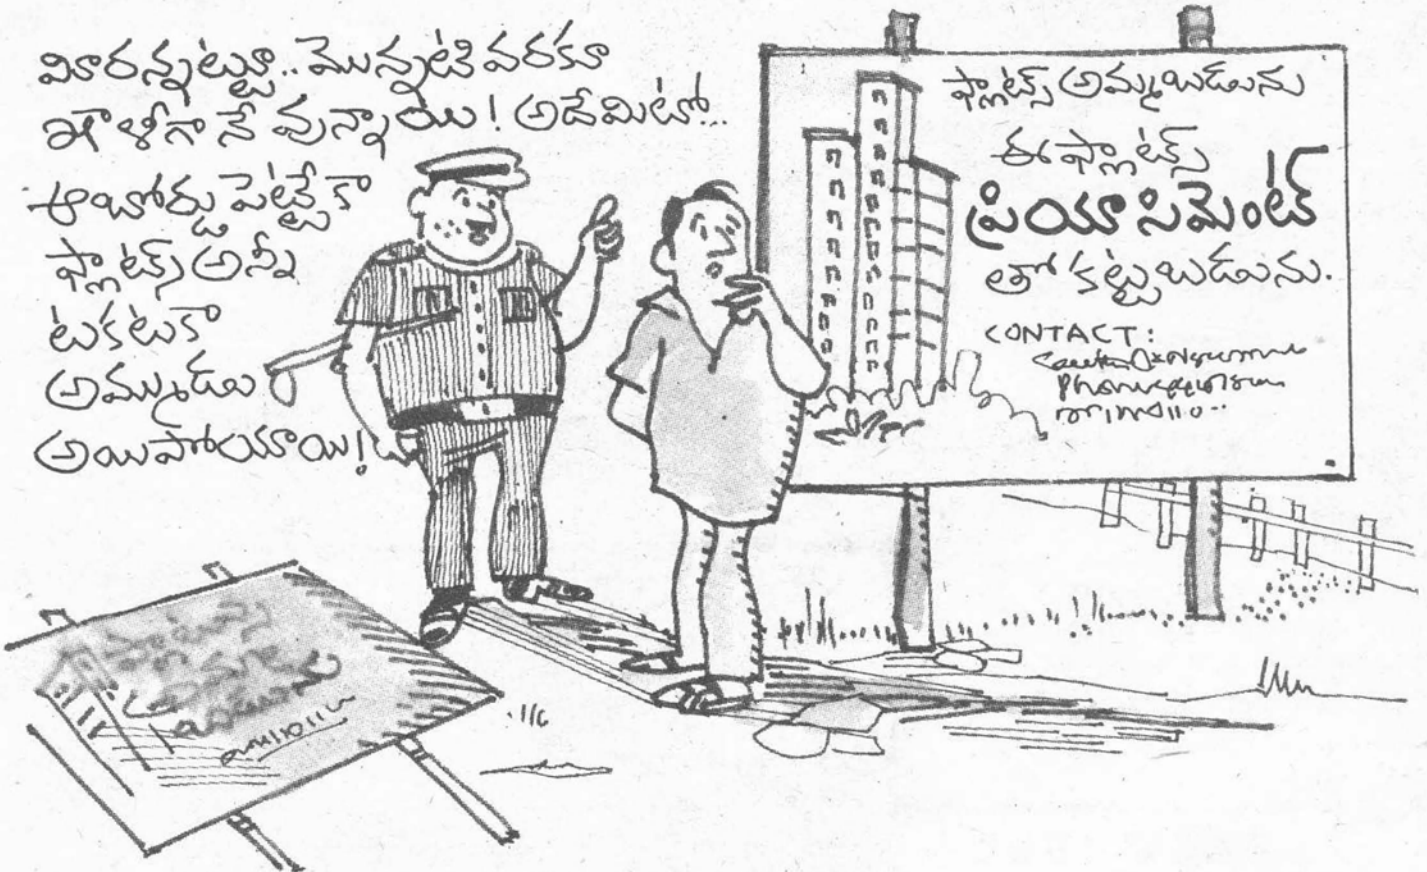 మీరన్నట్టూ.. మొన్నటి వరకూ
ఖాళీగానే వున్నాయి! అదేమిటో..
ఆబోర్డు పెట్టేకా
ఫ్లాట్స్ అన్నీ
టకటకా
అమ్ముడు
అయిపోయాయి!
ఫ్లాట్స్ అమ్మబడును
ఈ ఫ్లాట్స్
ప్రియా సిమెంట్
తో కట్టబడును.
CONTACT: